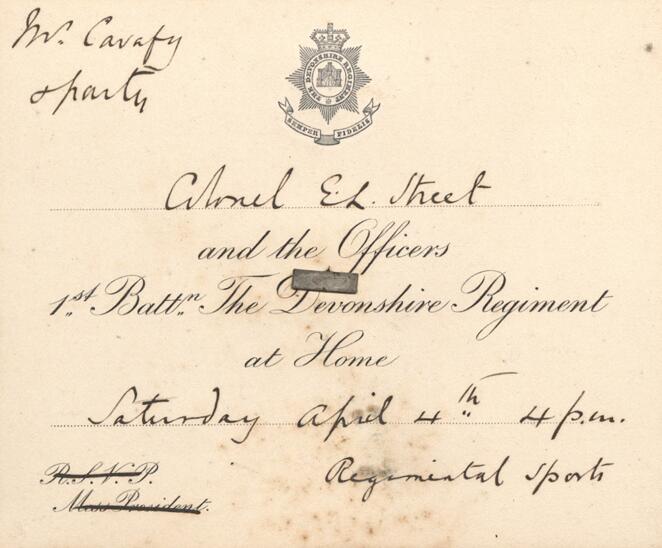 Mr. Cavafy
& party
THE DEVONSHIRE REGIMENT
SEMPER FIDELIS
Colonel E.L. Street
and the Officers
1.st Batt.n The Devonshire Regiment
at Home
Saturday April 4th 4 p.m.
R.S.V.P.
Regimental Sports
Mess President.